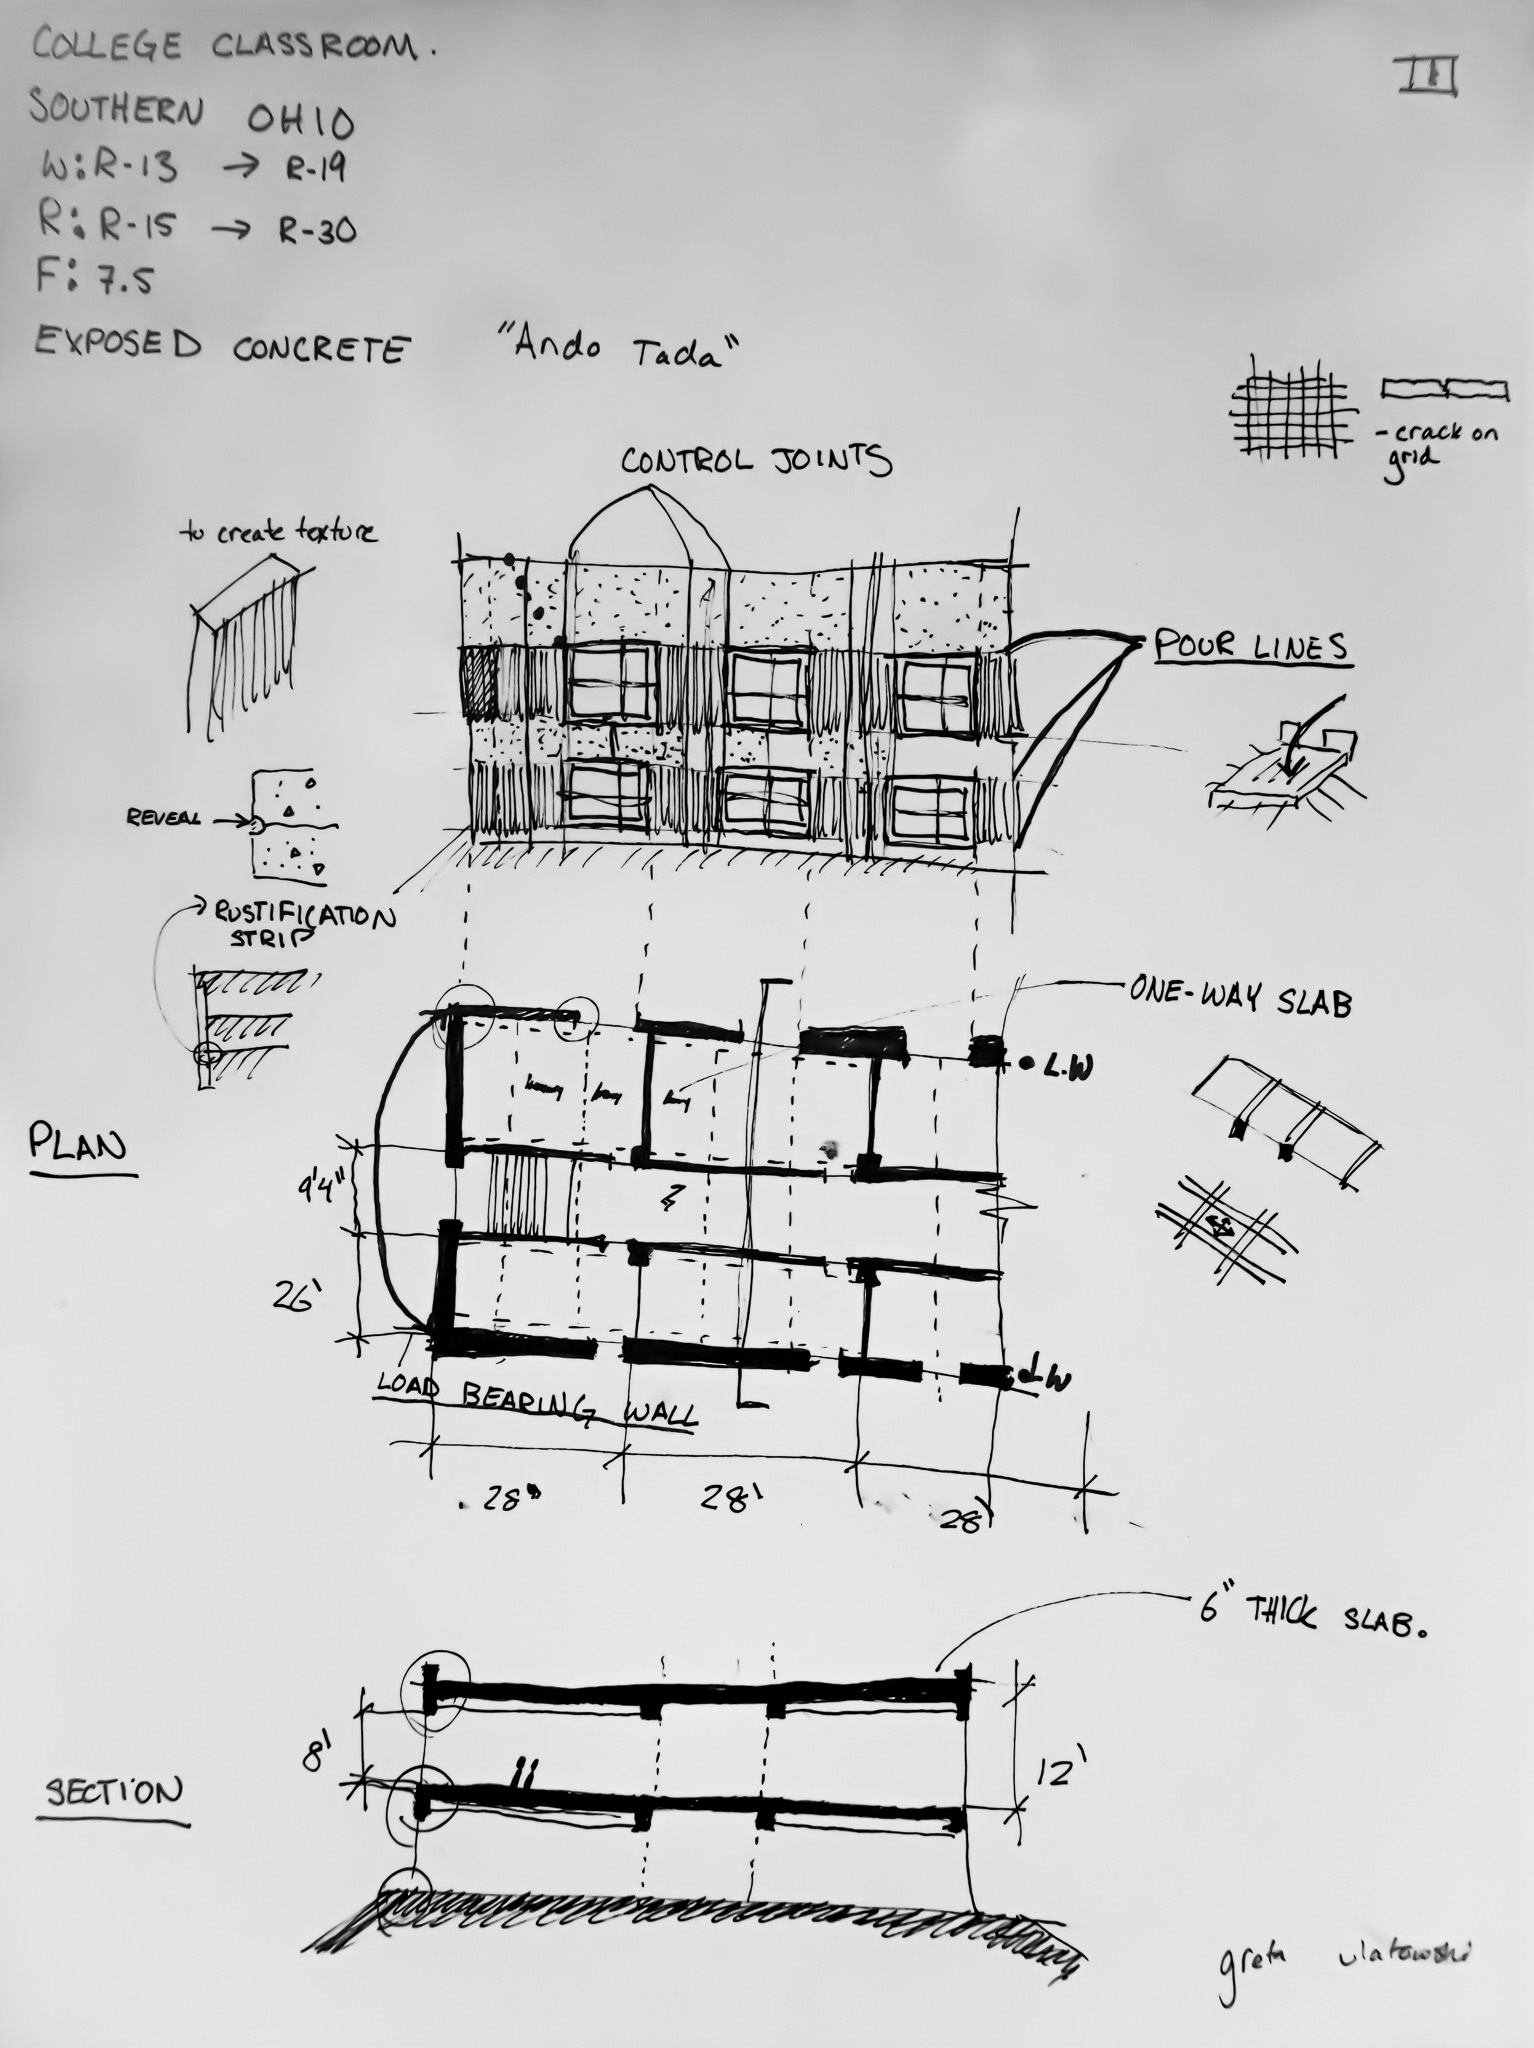 COLLEGE CLASSROOM.
SOUTHERN OHIO
W: R-13 → R-19
R: R-15 → R-30
F: 7.5
EXPOSED CONCRETE "Ando Tada"
- crack on
grid
CONTROL JOINTS
to create texture
POUR LINES
REVEAL
RUSTIFICATION
STRIP
ONE-WAY SLAB
L.W
PLAN
9'4"
26'
L.W
LOAD BEARING WALL
28'
28'
28'
6" THICK SLAB.
8'
12'
SECTION
greta ulatowski